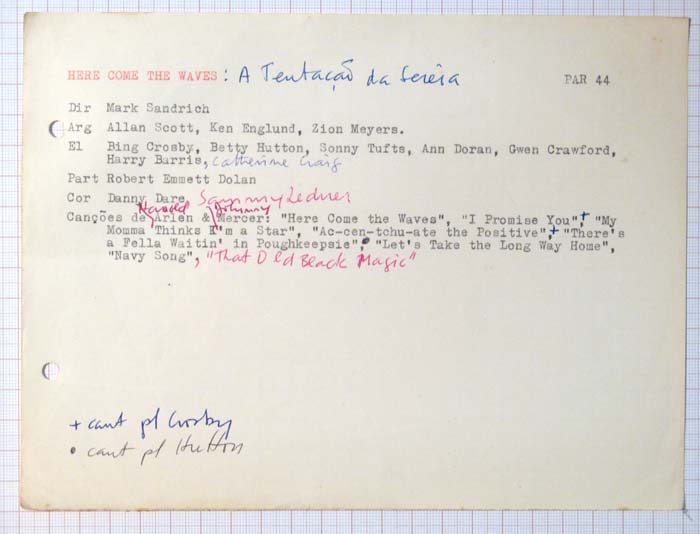 HERE COME THE WAVES : A Tentação da Sereia PAR 44
Dir Mark Sandrich
Arg Allan Scott, Ken Englund, Zion Meyers.
El Bing Crosby, Betty Hutton, Sonny Tufts, Ann Doran, Gwen Crawford,
Harry Barris, Catherine Craig
Part Robert Emmett Dolan
Cor Danny Dare Sammy Ledner
Harold Johnny
Canções de Arlen & Mercer: "Here Come the Waves", "I Promise You"+, "My
Momma Thinks I'm a Star", "Ac-cen-tchu-ate the Positive"+, "There's
a Fella Waitin' in Poughkeepsie"•, "Let's Take the Long Way Home",
"Navy Song", "That Old Black Magic"
+ cant pl Crosby
• cant pl Hutton